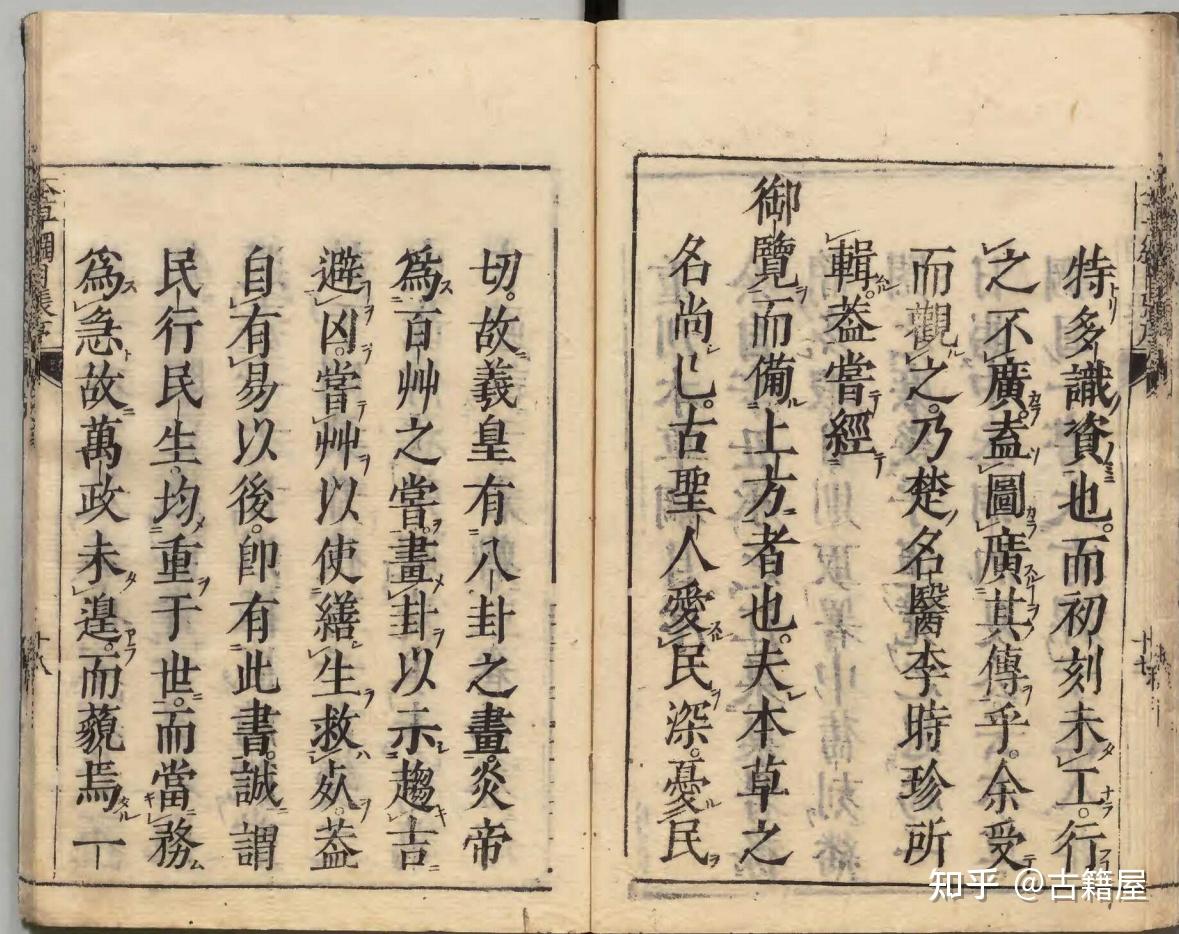 特多識資也。而初刻未工。行
之不廣。盍圖廣其傳乎。余受
而觀之。乃楚名醫李時珍所
輯。葢嘗經
御覽而備上方者也。夫本草之
名尚已。古聖人愛民深。憂民
切。故羲皇有八卦之畫。炎帝
爲百艸之嘗。畫卦以示趨吉
避凶。嘗艸以使繕生救夭。葢
自有易以後。卽有此書。誠謂
民行民生。均重于世。而當務
爲急。故萬政未遑。而藐焉一
十八
知乎 @古籍屋